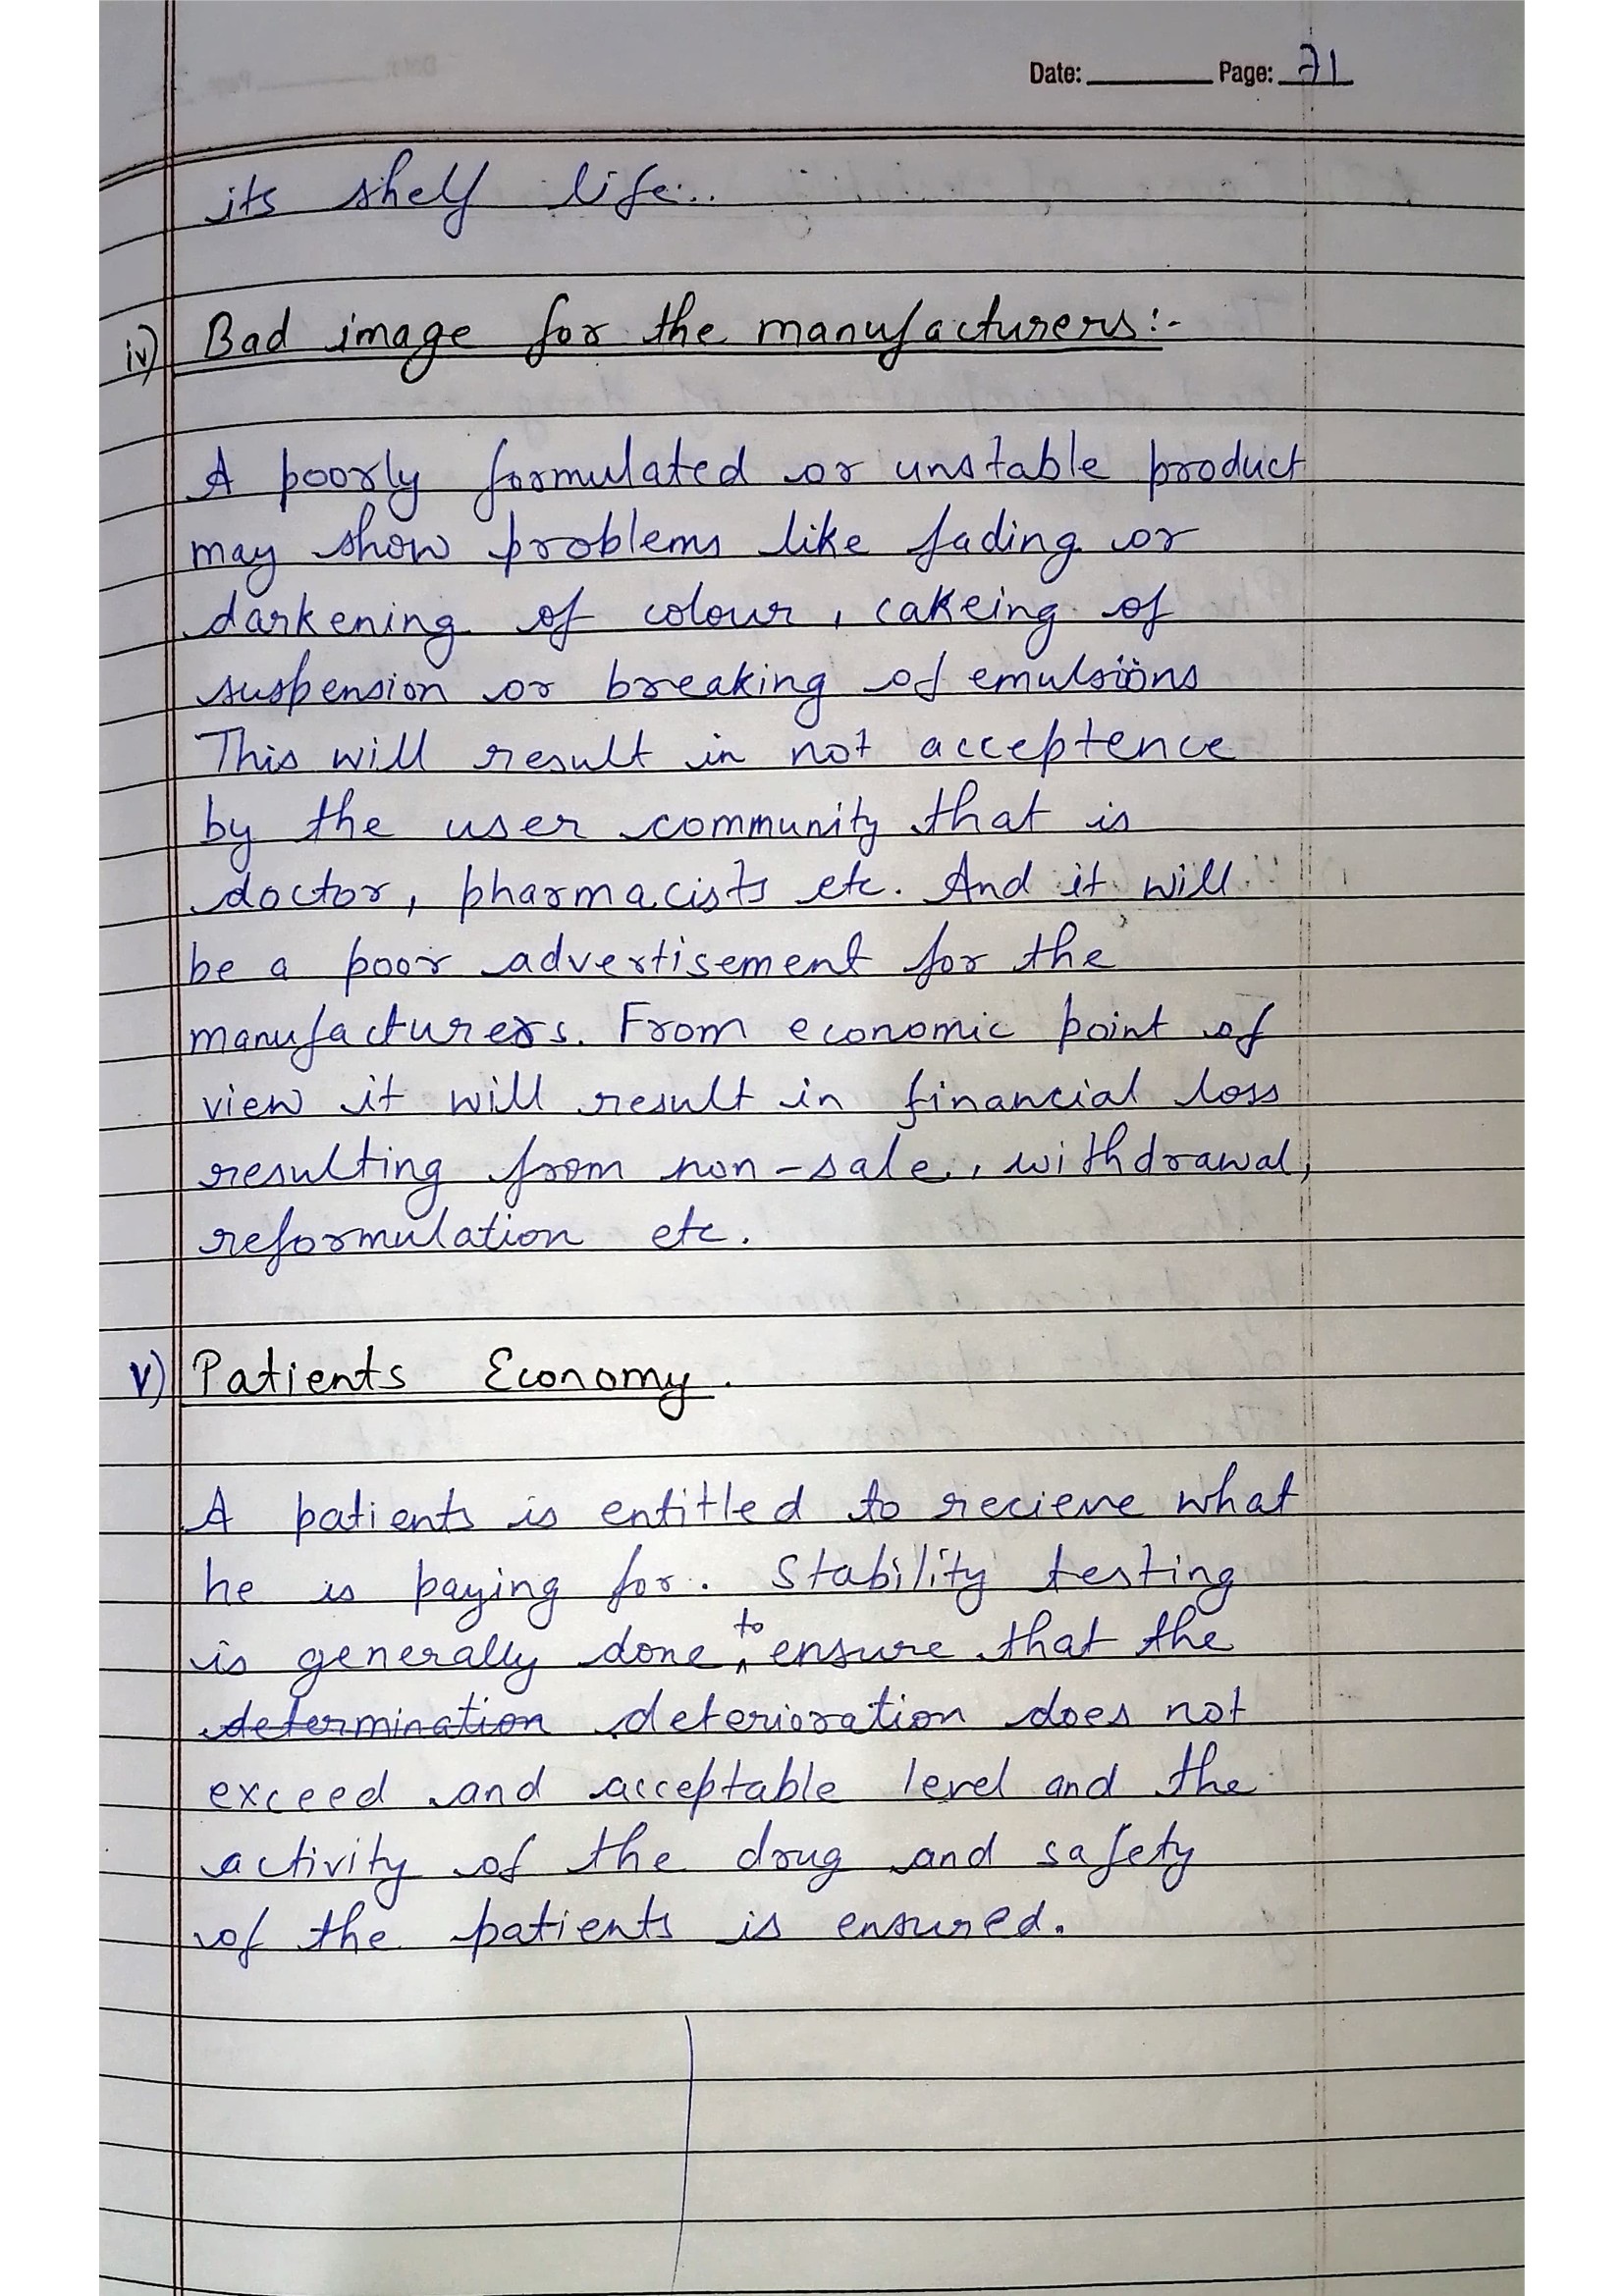 Date: Page: 71
its shelf life..
iv) Bad image for the manufacturers:-
A poorly formulated or unstable product
may show problems like fading or
darkening of colour, cakeing of
suspension or breaking of emulsions
This will result in not acceptence
by the user community that is
doctor, pharmacists etc. And it will
be a poor advertisement for the
manufacturers. From economic point of
view it will result in financial loss
resulting from non-sale, withdrawal,
reformulation etc.
v) Patients Economy.
A patients is entitled to recieve what
he is paying for. Stability testing
is generally done to ensure that the
determination deterioration does not
exceed and acceptable level and the
activity of the drug and safety
of the patients is ensured.